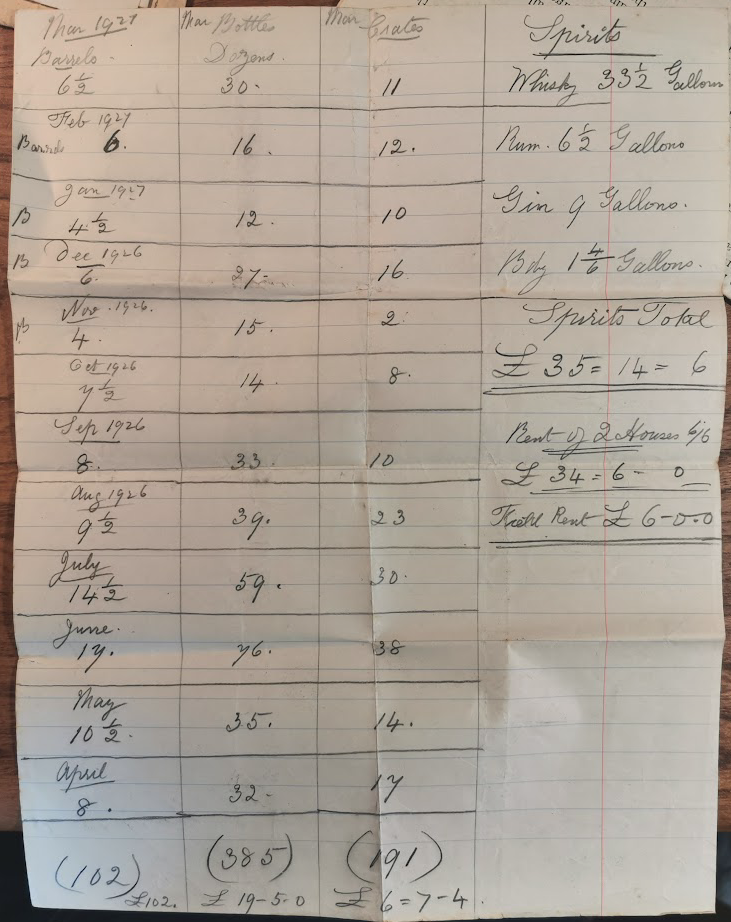 Mar 1927 Mar Bottles Mar Crates
Barrels. Dozens.
6 1/2 30. 11
Feb 1927
Barrels 6. 16. 12.
Jan 1927
B 4 1/2 12. 10
B Dec 1926
6. 27- 16.
Nov. 1926.
B 4. 15. 2
Oct 1926
7 1/2 14. 8.
Sep 1926
8. 33. 10
Aug 1926
9 1/2 39. 23
July
14 1/2 59. 30.
June.
17. 76. 38
May
10 1/2. 35. 14.
April
8. 32- 17
(102) (385) (191)
£102. £ 19-5-0 £ 6=7-4.
Spirits
Whisky 33 1/2 Gallons
Rum. 6 1/2 Gallons
Gin 9 Gallons.
Bdy 1 4/6 Gallons.
Spirits Total
£ 35= 14= 6
Rent of 2 Houses 6/6
£ 34=6- 0
Rent £ 6-0-0